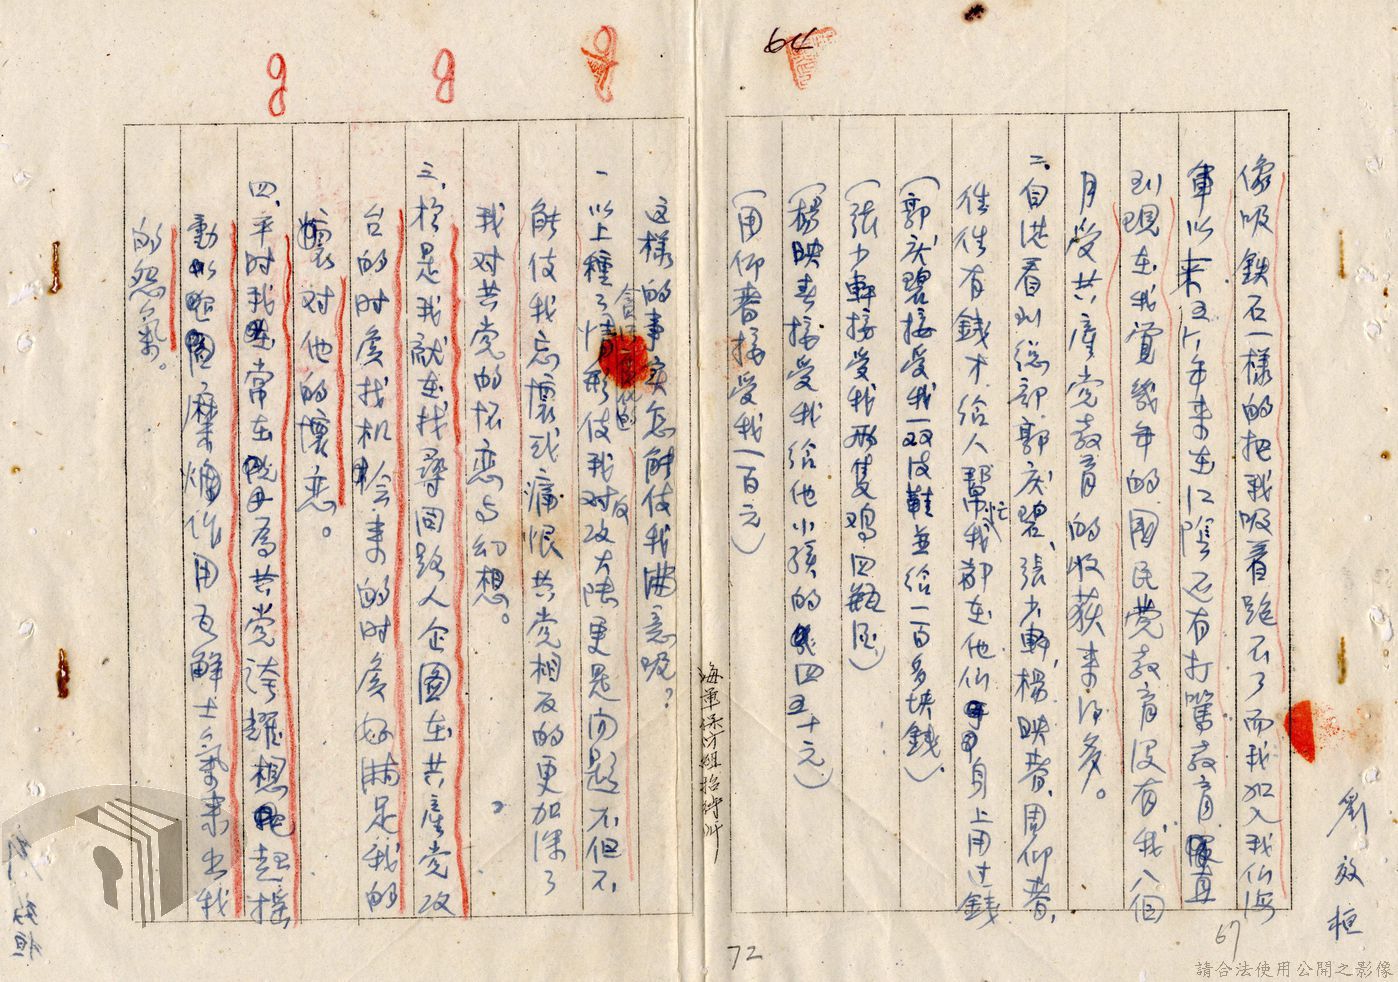 64
像吸鉄石一樣的把我吸着跑不了而我加入我们海
軍以来五个年来在江陰还有打罵教育
到現在我覚幾年的國民党教育没有我八個
月受共産党教育的收获来得多。
二、自港着到总部郭庆碧、張少軒、楊映春、周仰春、
往往有錢才給人幫忙我都在他们身上用过錢
(郭庆碧接受我一双皮鞋並給一百多块錢)、
(張少軒接受我兩隻鸡四瓶酒)
(楊映春接受我給他小孩的四五十元)
(周仰春接受我一百元)
这樣的事实怎能使我满意呢？
一 以上種种情形使我对反攻大陸更是问題不但不
能使我忘懷或痛恨共党相反的更加深了
我对共党的怀恋与幻想。
三、於是我就在找尋回路人企圖在共産党攻
台的时候找机会来的时候好满足我的
懷对他的懷恋。
四、平时我常在为共党誇耀想起搖
動和麻煩作用瓦解士氣来出我
的怨氣。
海軍保防組招待所
劉效桓
67
72
請合法使用公開之影像